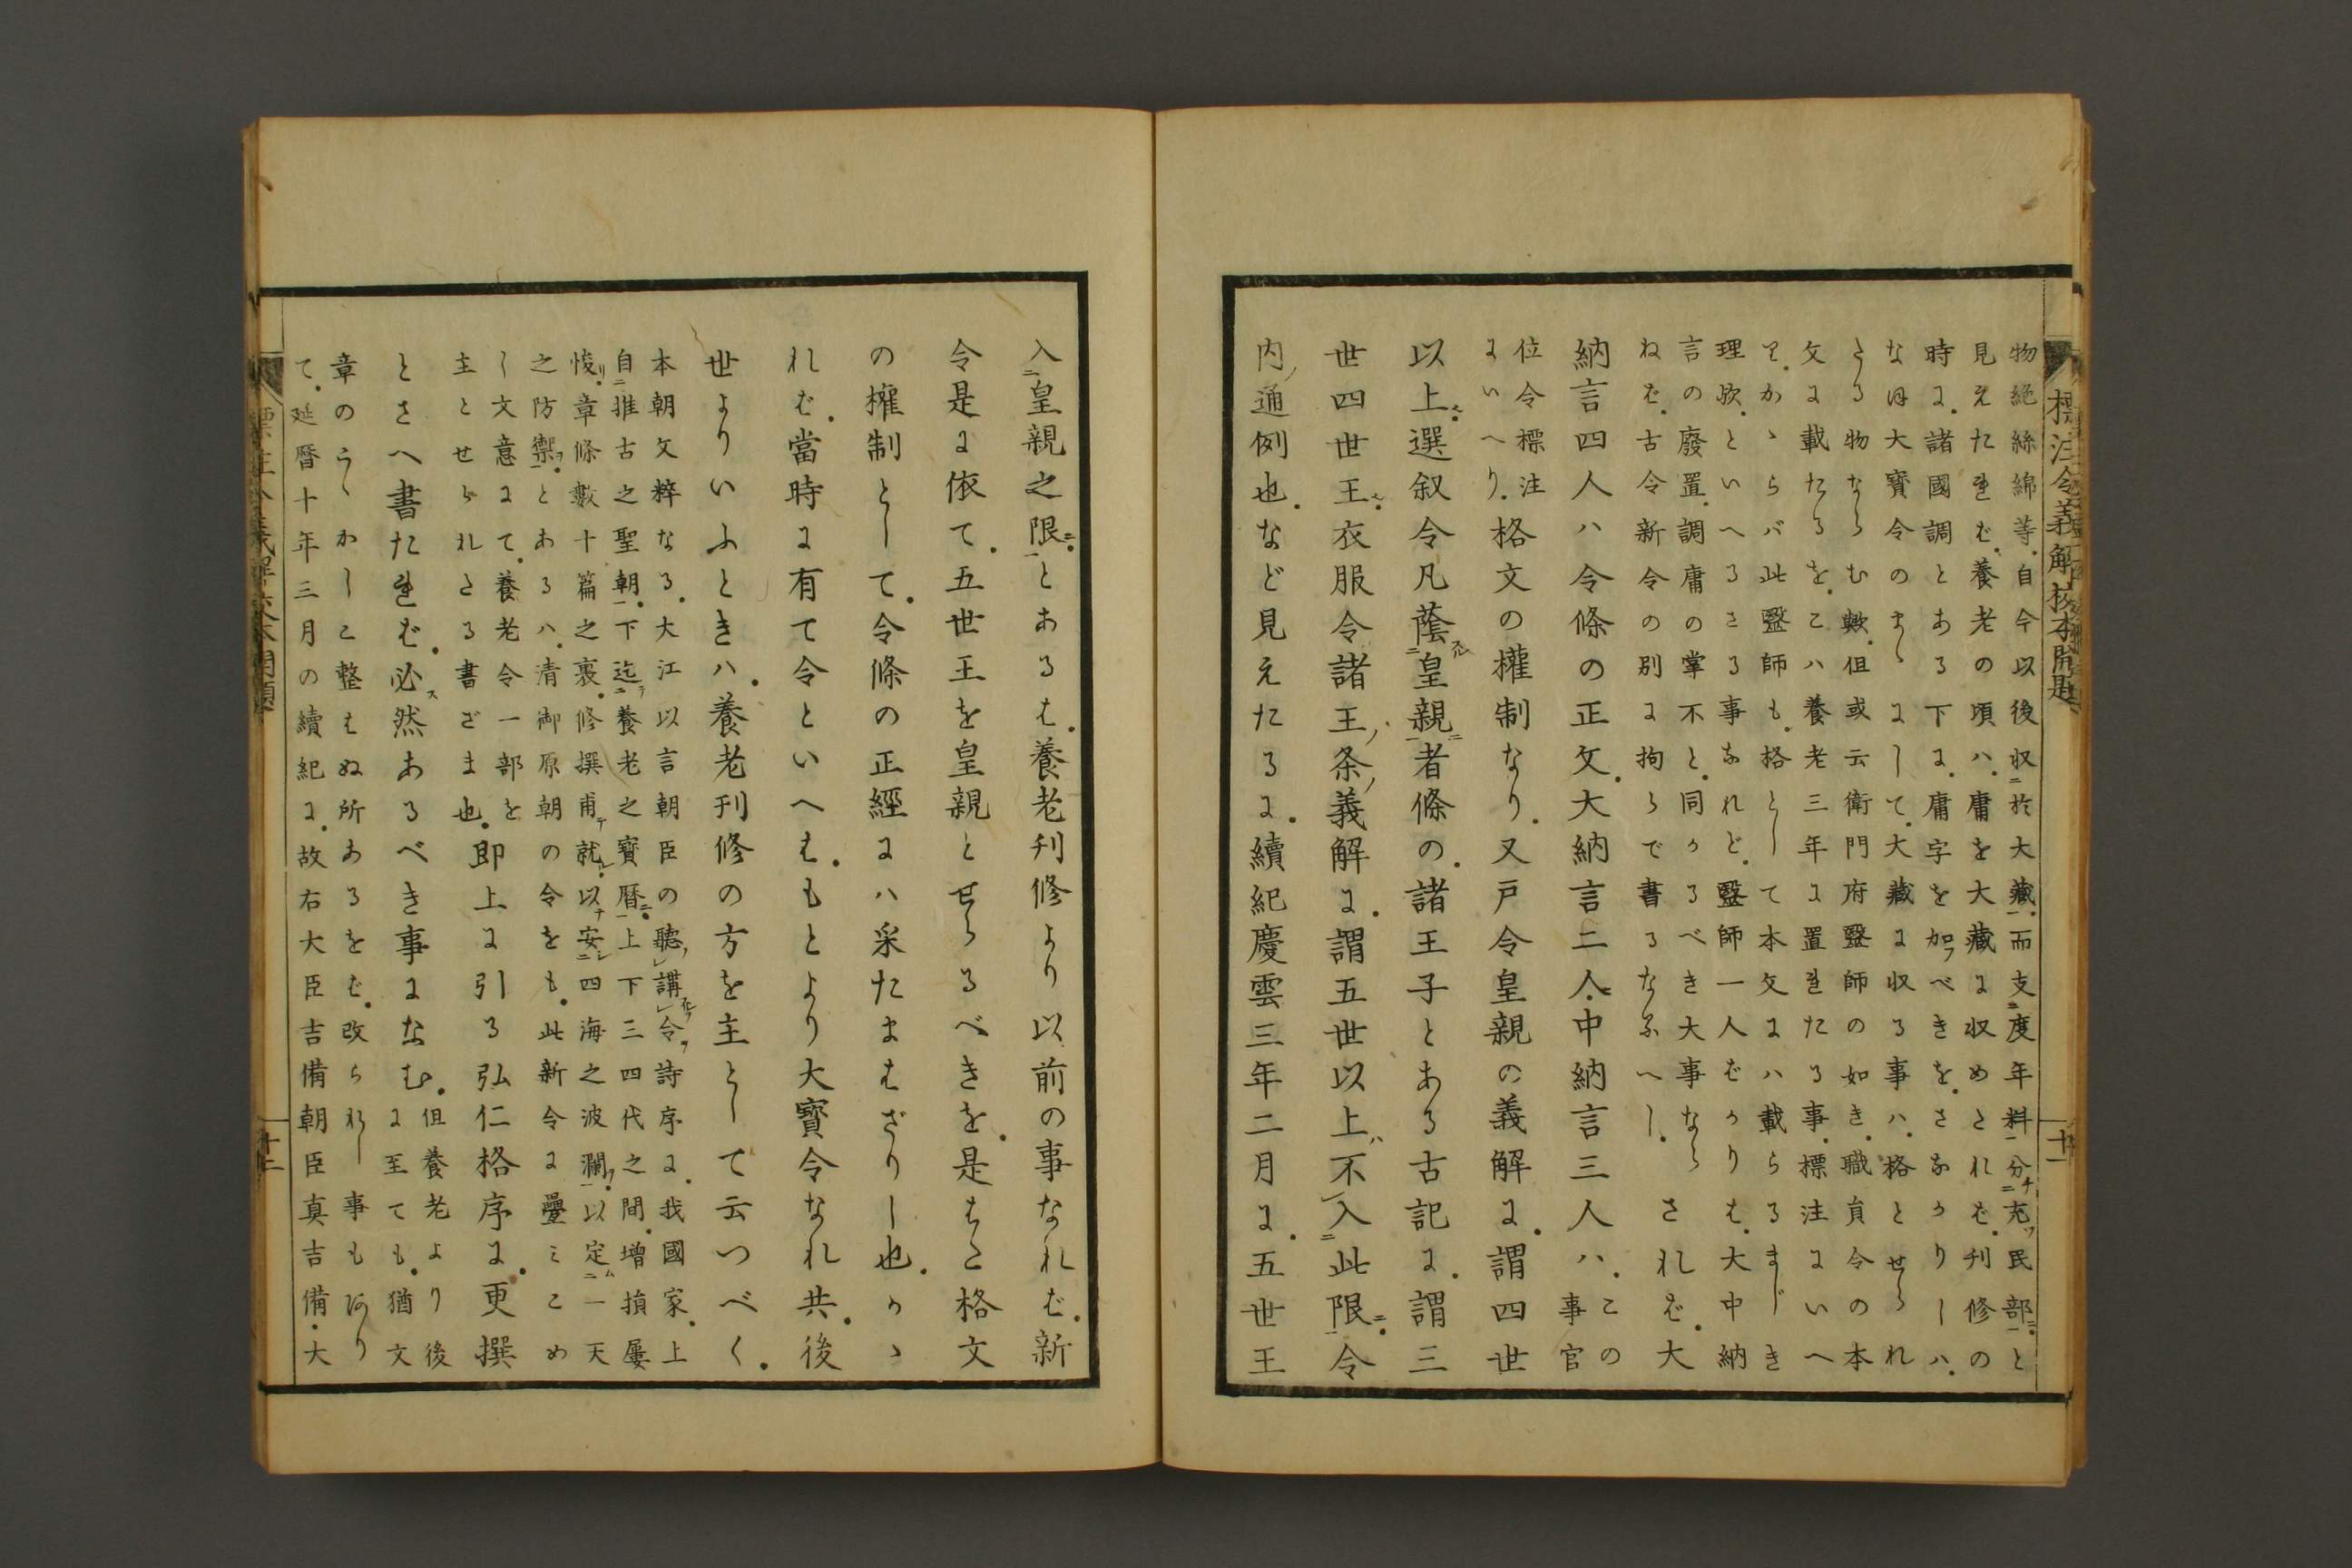 標注令義解校本開題
十一
物絁絲綿等自今以後収ニ於大藏一而支ニ度年料一分チ充ツ民部ニ一と
見えたれど養老の頃ハ庸を大藏に収めとれど刊修の
時に諸國調とある下に庸字を加ふべきをさなかりしハ
なほ大寶令のまゝにして大藏に収る事ハ格とせられ
たる物ならむ歟但或云衛門府醫師の如き職員令の本
文に載たるをこハ養老三年に置れたる事標注にいへ
りかゝらバ此醫師も格として本文にハ載らるまじき
理歟といへるさる事なれど醫師一人ばかりは大中納
言の廢置調庸の掌不と同かるべき大事なら
ねば古令新令の別に拘らで書るなるべし
されば大
納言四人ハ令條の正文大納言二人中納言三人ハ
この
事官
位令標注
にいへり
格文の權制なり又戸令皇親の義解に謂四世
以上選叙令凡蔭皇親者條の諸王子とある古記に謂三
世四世王衣服令諸王条義解に謂五世以上ハ不入此限令
内通例也など見えたるに續紀慶雲三年二月に五世王
入皇親之限とあるは養老刊修より以前の事なれど新
令是に依て五世王を皇親とせらるべきを是はた格文
の權制として令條の正經にハ采たまはざりし也かゝ
れば當時に有て令といへはもとより大寶令なれ共後
世よりいふときハ養老刊修の方を主として云つべく
本朝文粹なる大江以言朝臣の聽講令詩序に我國家上
自推古之聖朝下迄養老之寶暦上下三四代之間増損屢
悛章條數十篇之裏修撰甫就以安四海之波瀾以定一天
之防禦とあるハ清御原朝の令をも此新令に疊ミこめ
し文意にて養老令一部を
主とせられたる書ざま也
即上に引る弘仁格序に更撰
とさへ書たれば必然あるべき事になむ
但養老より後
に至ても猶文
章のうゝかしこ整はぬ所あるをば改られし事も有り
て延暦十年三月の續紀に故右大臣吉備朝臣真吉備大
標注令義解校本開題
十二